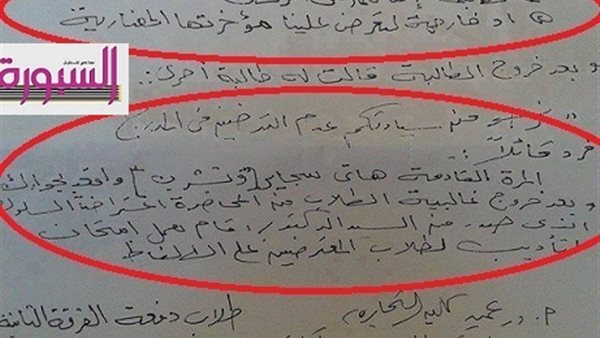 السبورة
أو خارجة لتعرض علينا مؤخرتها الحضارية
و بعد خروج الطالبة قالت له طالبة أخرى:
" نرجو من سيادتكم عدم التدخين في المدرج
فرد قائلاً:
المرة القادمة هاتى سجاير وتشربى واقعد بجوارك
و بعد خروج غالبية الطلاب من المحاضرة اعتراضاً السلوك
الذى صدر من السيد الدكتور / قام بعمل امتحان
لتأديب لطلاب المعترضين على الألفاظ
عميد كلية التجارة
طلاب دفعة الفرقة الثانية